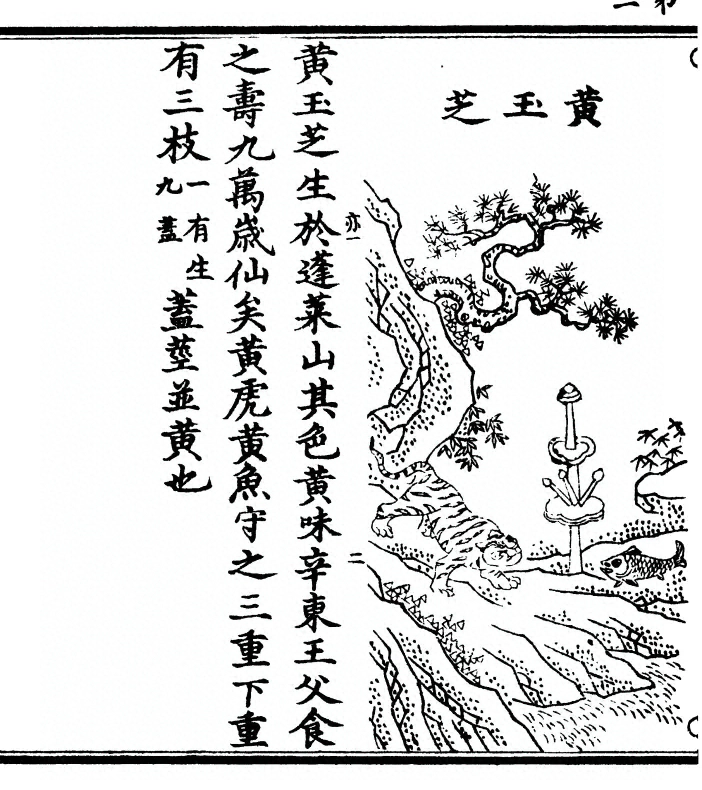 黄玉芝
亦一
二
黄玉芝生於蓬萊山其色黄味辛東王父食
之壽九萬歲仙矣黄虎黄魚守之三重下重
有三枝一有生九蓋蓋莖並黄也